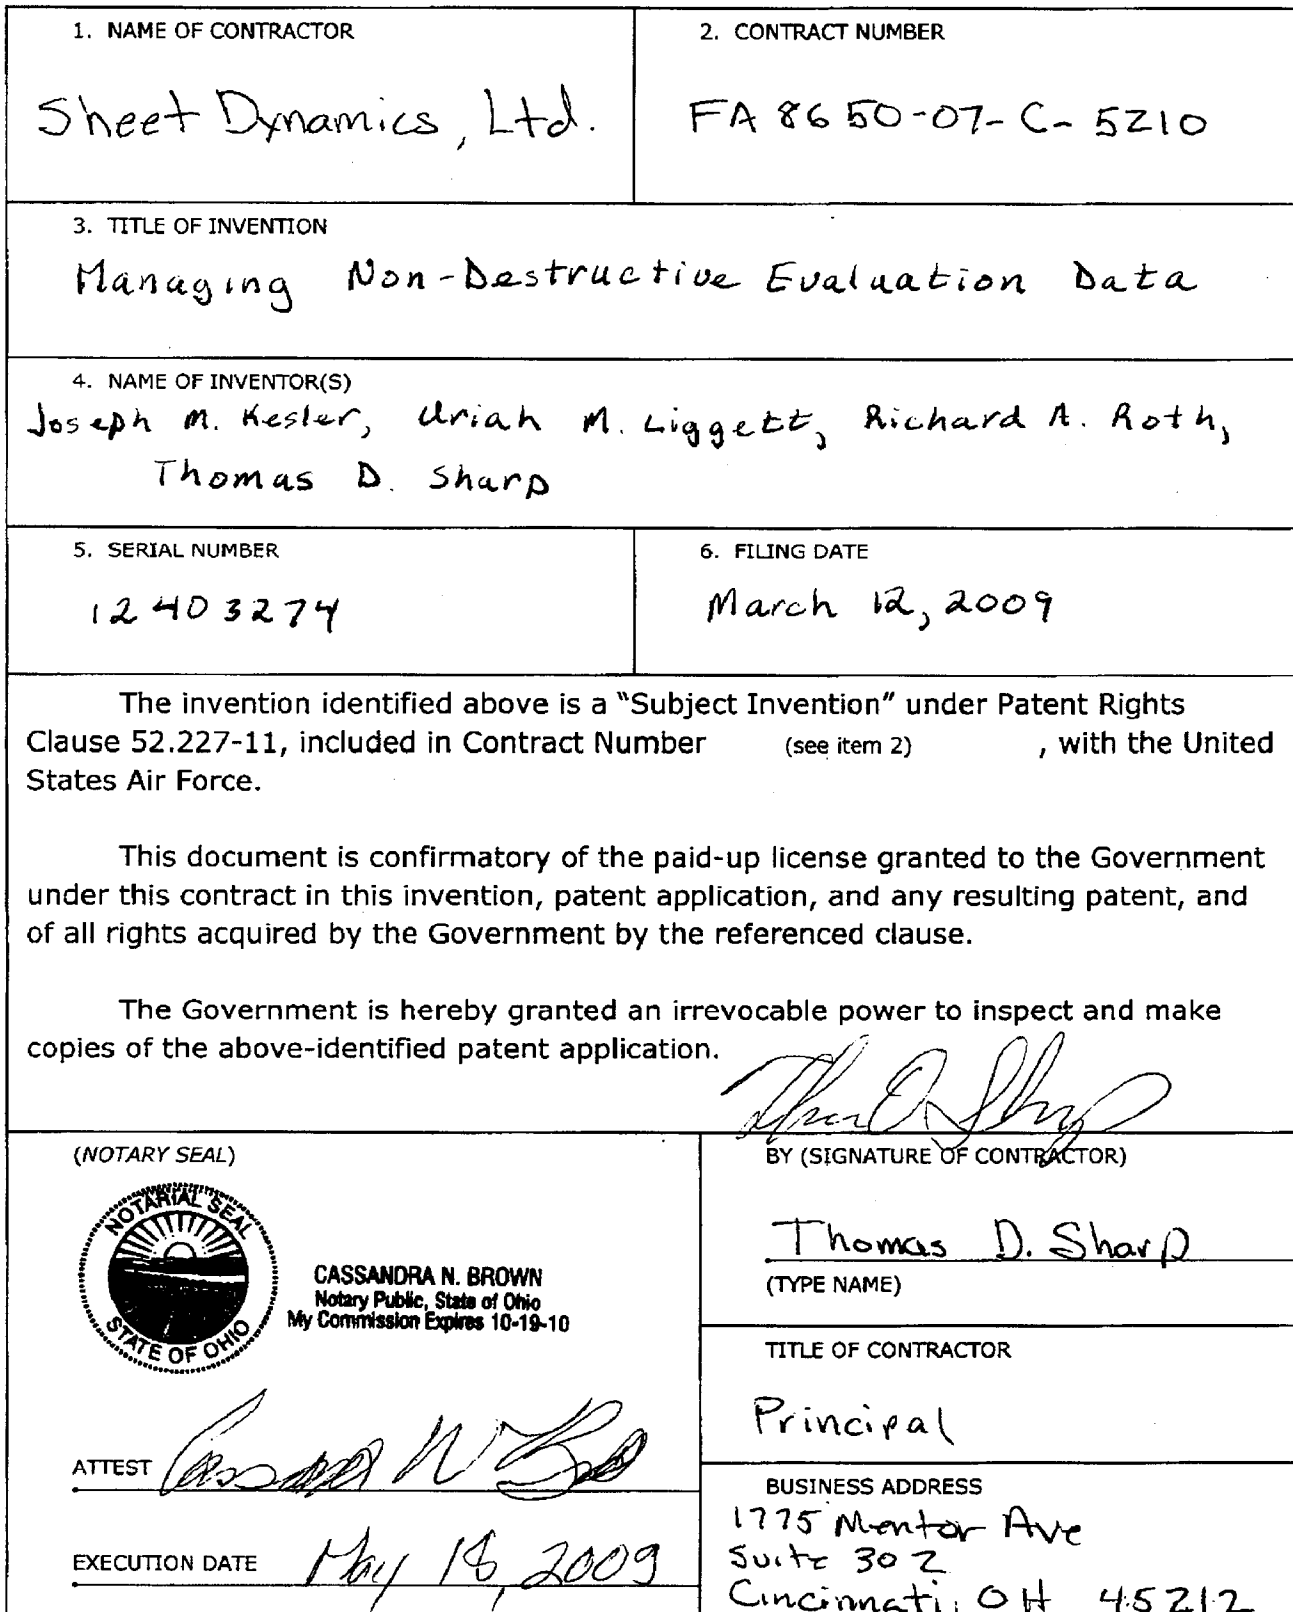 1. NAME OF CONTRACTOR
Sheet Dynamics, Ltd.
2. CONTRACT NUMBER
FA 8650-07-C-5210
3. TITLE OF INVENTION
Managing Non-Destructive Evaluation Data
4. NAME OF INVENTOR(S)
Joseph M. Kesler, Uriah M. Liggett, Richard A. Roth,
Thomas D. Sharp
5. SERIAL NUMBER
12403274
6. FILING DATE
March 12, 2009
The invention identified above is a “Subject Invention” under Patent Rights
Clause 52.227-11, included in Contract Number (see item 2) , with the United
States Air Force.
This document is confirmatory of the paid-up license granted to the Government
under this contract in this invention, patent application, and any resulting patent, and
of all rights acquired by the Government by the referenced clause.
The Government is hereby granted an irrevocable power to inspect and make
copies of the above-identified patent application.
(NOTARY SEAL)
NOTARIAL SEAL
STATE OF OHIO
CASSANDRA N. BROWN
Notary Public, State of Ohio
My Commission Expires 10-19-10
ATTEST Cassandra N Brown
EXECUTION DATE May 18, 2009
Thomas D. Sharp
BY (SIGNATURE OF CONTRACTOR)
Thomas D. Sharp
(TYPE NAME)
TITLE OF CONTRACTOR
Principal
BUSINESS ADDRESS
1775 Mentor Ave
Suite 302
Cincinnati, OH 45212